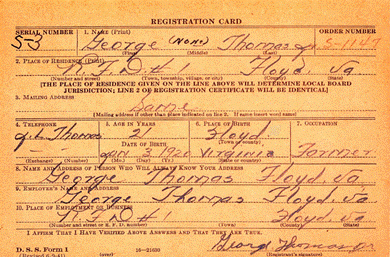 REGISTRATION CARD
SERIAL NUMBER 1. NAME (Print) ORDER NUMBER
53 George (None) Thomas Jr S-1147
(First) (Middle) (Last)
2. PLACE OF RESIDENCE (Print)
R.F.D. #1 Floyd, Va
(Number and street) (Town, township, village, or city) (County) (State)
[THE PLACE OF RESIDENCE GIVEN ON THE LINE ABOVE WILL DETERMINE LOCAL BOARD
JURISDICTION; LINE 2 OF REGISTRATION CERTIFICATE WILL BE IDENTICAL]
3. MAILING ADDRESS
Same
[Mailing address if other than place indicated on line 2. If same insert word same]
4. TELEPHONE 5. AGE IN YEARS 6. PLACE OF BIRTH 7. OCCUPATION
Thomas 21 Floyd
DATE OF BIRTH (Town or county)
Jan 3 1920 Virginia Farmer
(Exchange) (Number) (Mo.) (Day) (Yr.) (State or country)
8. NAME AND ADDRESS OF PERSON WHO WILL ALWAYS KNOW YOUR ADDRESS
George Thomas Floyd, Va
9. EMPLOYER'S NAME AND ADDRESS
George Thomas Floyd, Va.
10. PLACE OF EMPLOYMENT OR BUSINESS
R.F.D #1 Floyd Va
(Number and street or R. F. D. number) (Town) (County) (State)
I AFFIRM THAT I HAVE VERIFIED ABOVE ANSWERS AND THAT THEY ARE TRUE.
D. S. S. Form 1 George Thomas Jr
(Revised 6-9-41) (over) 16-21630 (Registrant's signature)